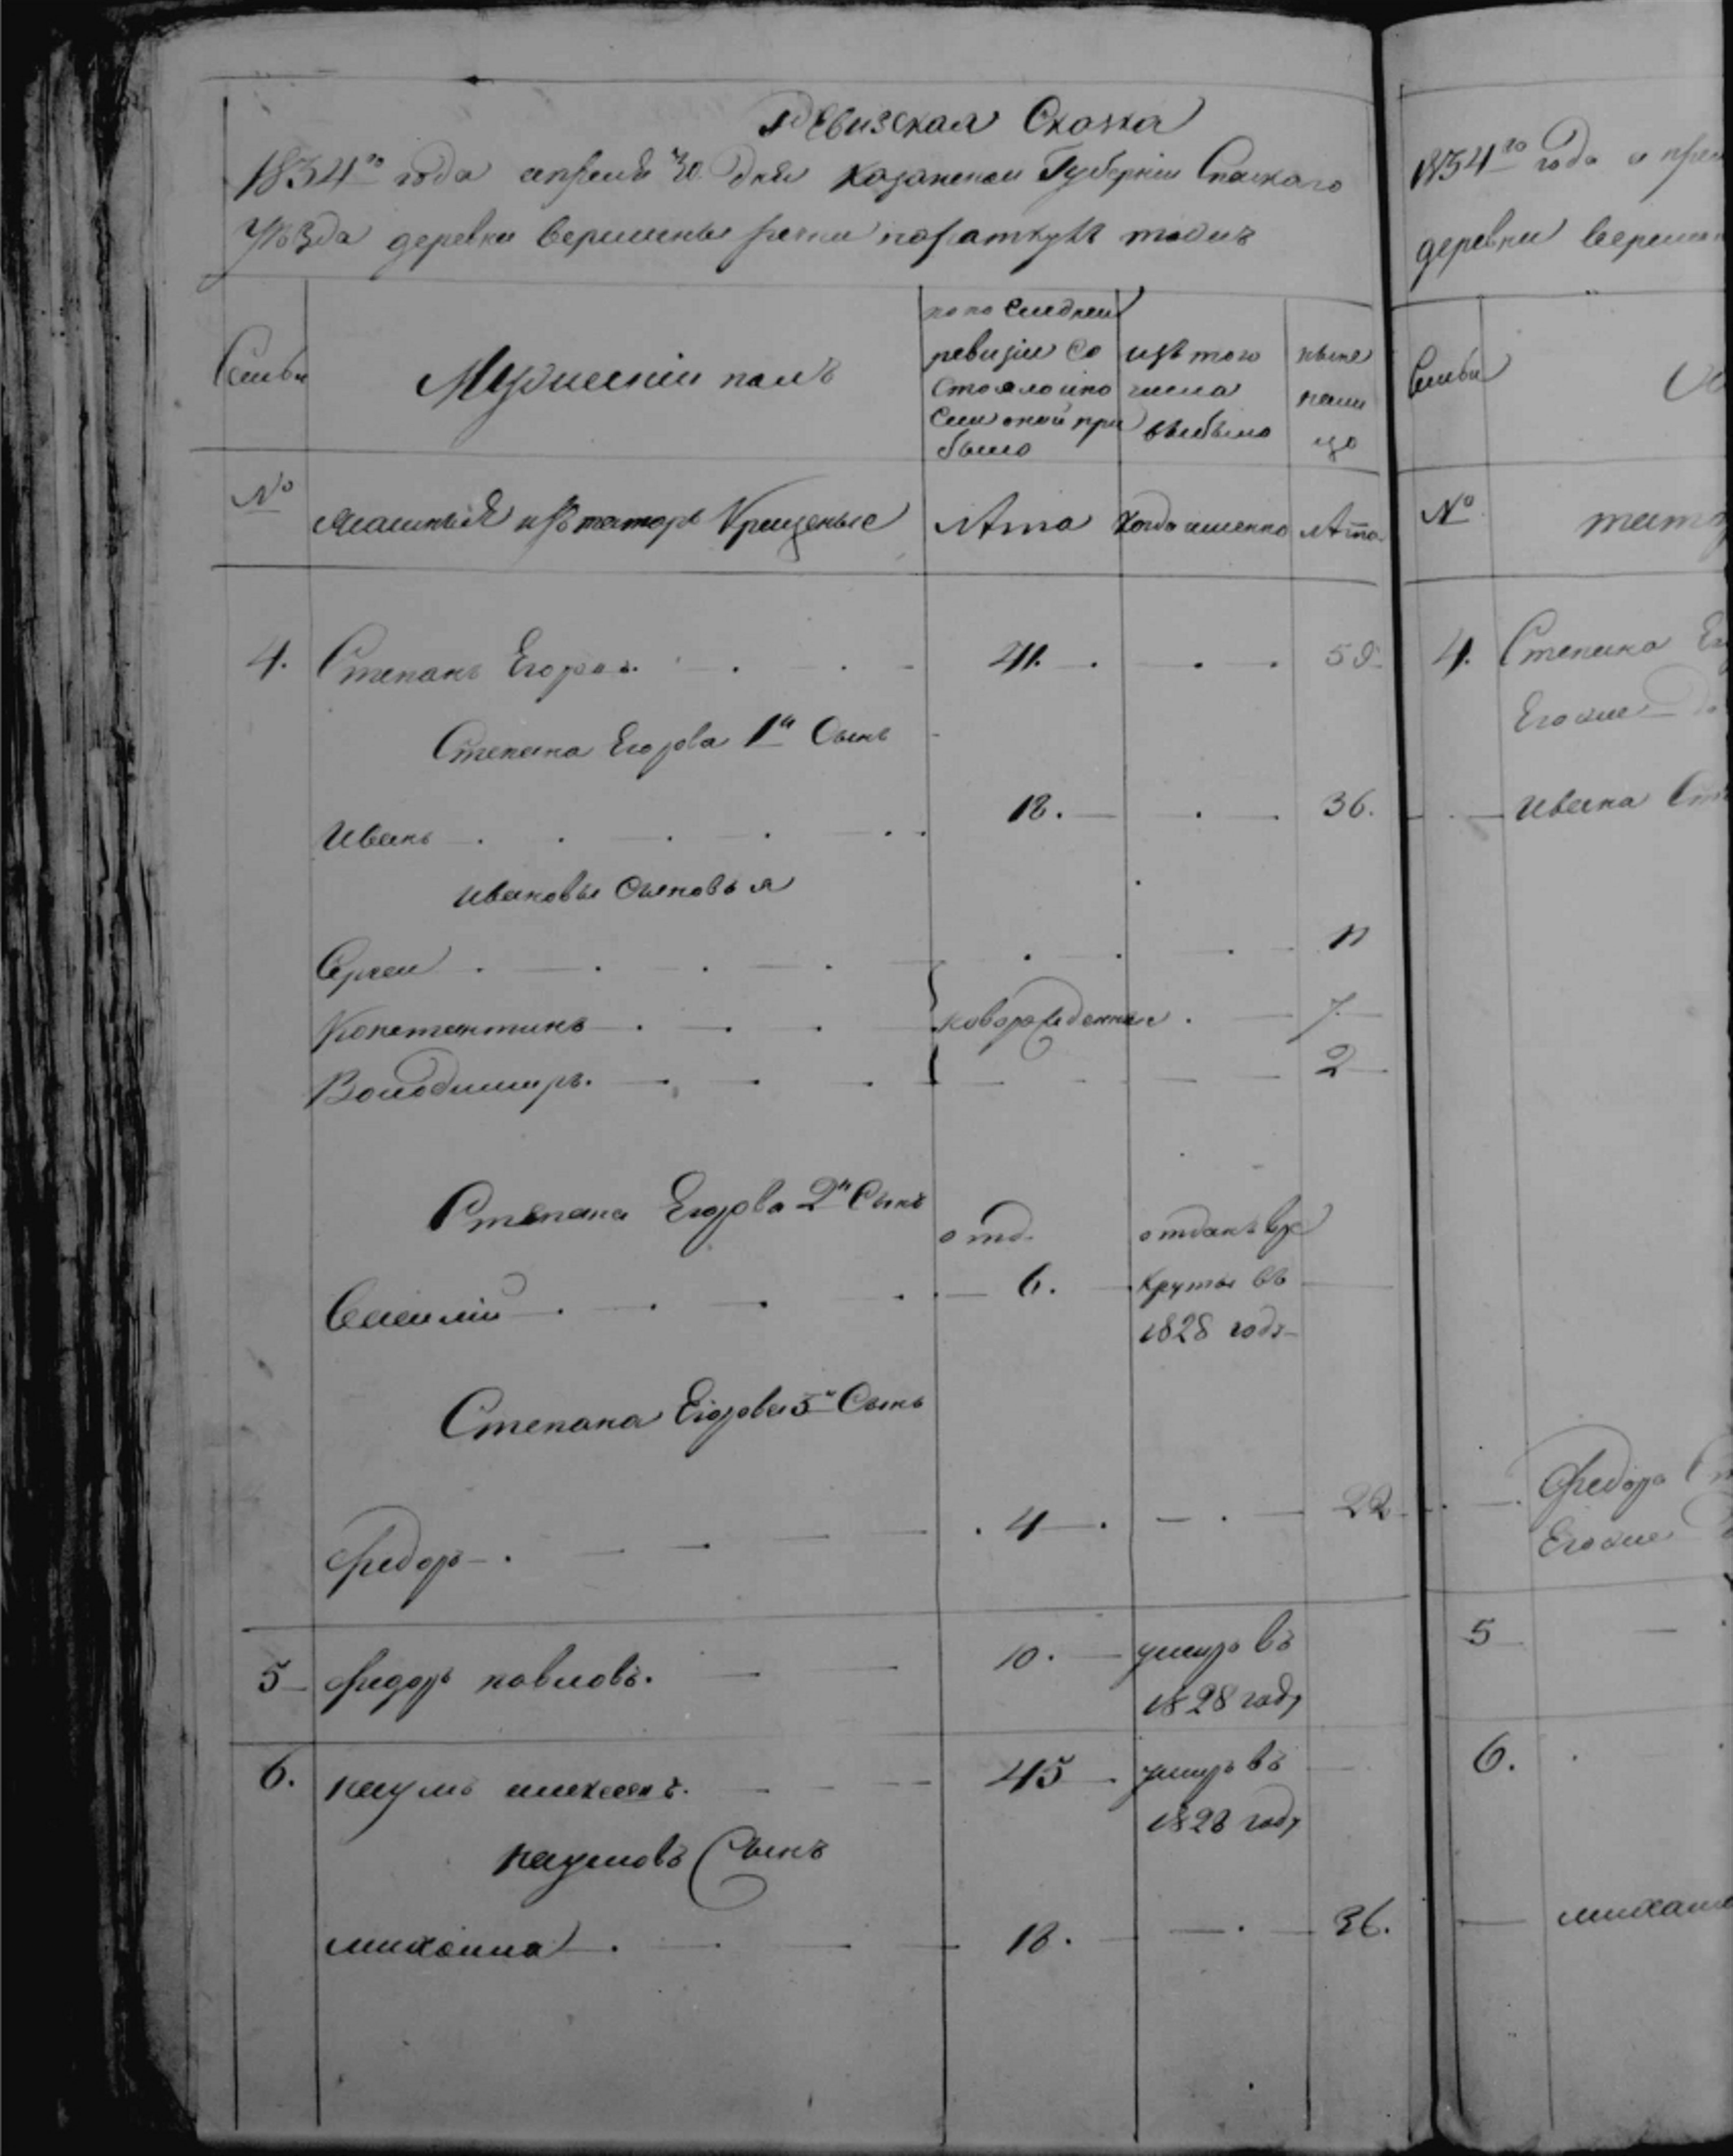 Ревизская Сказка
1834го года апреля 30 дня Казанской Губернии Спаскаго
Уѣзда деревни вершины речки
Семьи
Мужескій полъ
по последней
ревизіи со
стояло ипо
сли оной при
было
изъ того
числа
выбыло
ныне
нали
цо
№
ясашныя изъ татаръ Крещеные
Лѣта
Когда именно
Лѣта
4. Степанъ Егоровъ. 41. 59
Степана Егорова 1й Сынъ
Иванъ 18. 36.
Ивановы Сыновья
Сергеи 11
Констентинъ новорожденные 7
Володимиръ. 2
Степана Егорова 2й Сынъ
отд. отданъ вре
Василій 6. круты въ
1828 году
Степана Егорова 3й Сынъ
Федоръ 4 22
5 Федоръ павловъ. 10. умиръ въ
1828 году
6. наумъ 45 умиръ въ
1828 году
наумовъ Сынъ
михаила 18. 36.
1834го года
деревни
Семьи
№
4. Степана
Егоже
Ивана
Федора
Егоже
5
6.